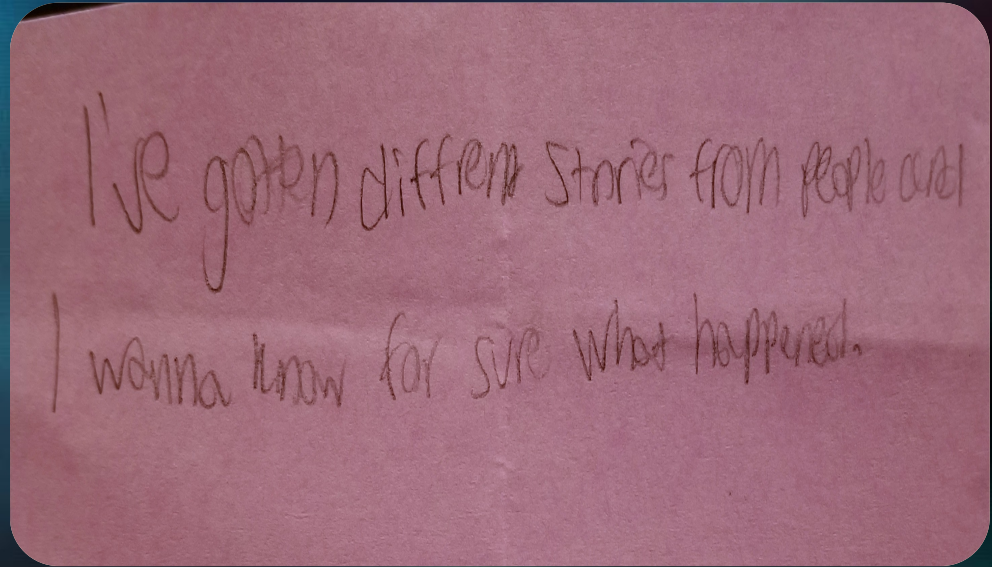 I've gotten diffrent stories from people and
I wanna know for sure what happened.